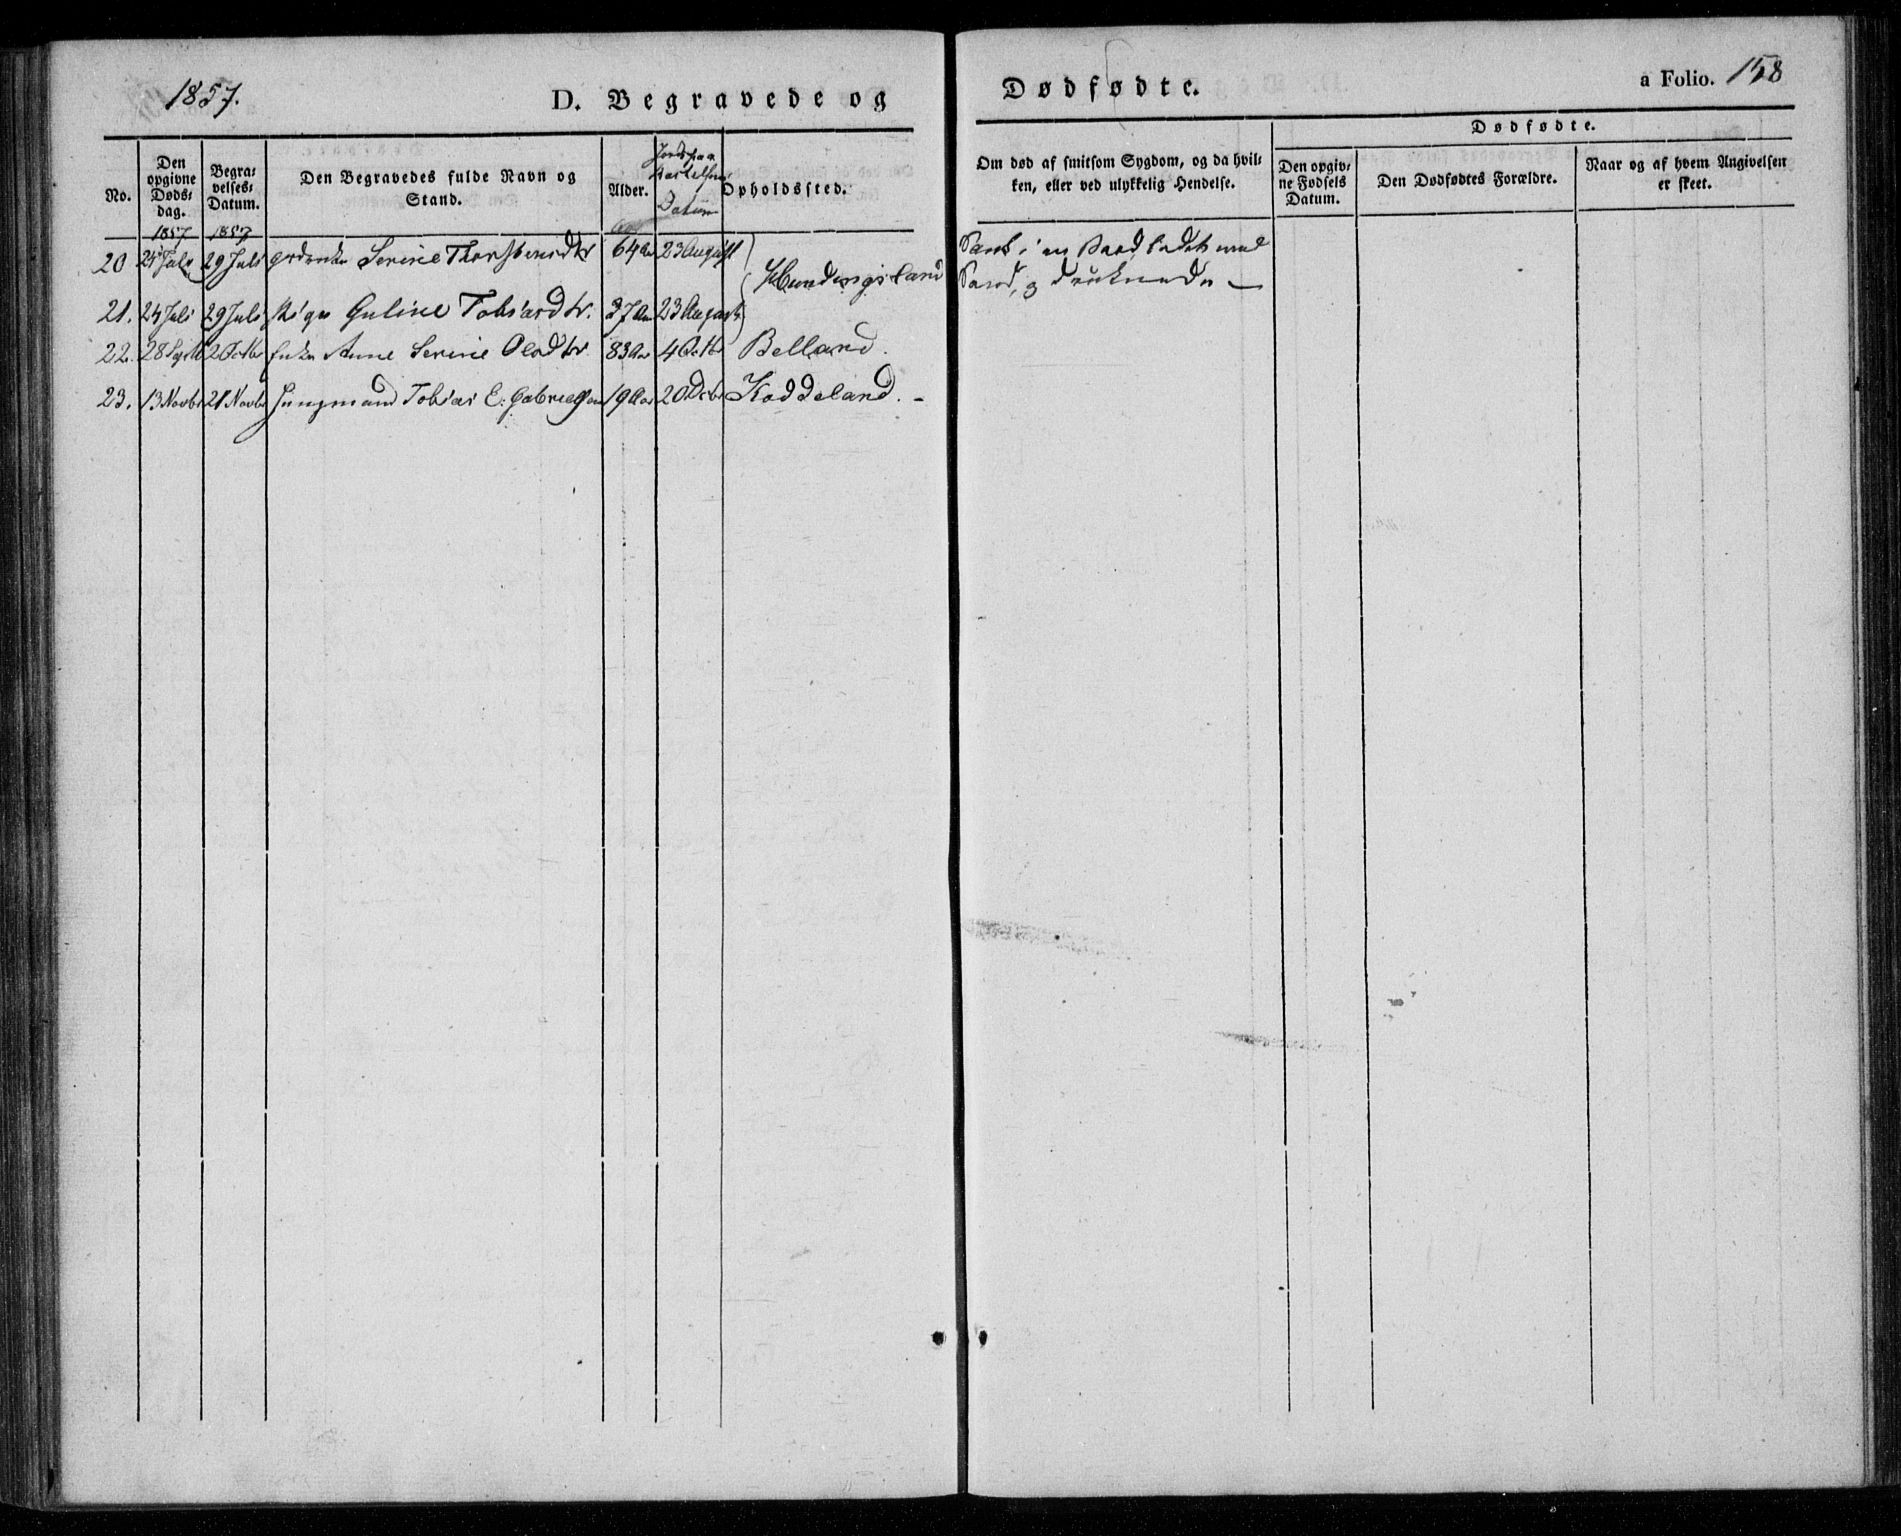 1857.
D. Begravede og Dødfødte.
a Folio. 158
No.
Den opgivne Døds-dag.
Begra-velses-Datum.
Den Begravedes fulde Navn og Stand.
Alder.
Jords paa kastelses Datum
Opholdssted.
Om død af smitsom Sygdom, og da hvil-ken, eller ved ulykkelig Hendelse.
Dødfødte.
Den opgiv-ne Fødsels Datum.
Den Dødfødtes Forældre.
Naar og af hvem Angivelsen er skeet.
1857 1857
20 24 Juli 29 Juli Serine Thorstensdtr 64 Aar 23 August Sank i en Baad ladet med
Sand, og druknede —
21. 24 Juli 29 Juli Pige Guline Tobiasdtr. 37 Aar 23 August
22. 28 Septb 2 Octbr Enke Anne Serine Olsdtr 83 Aar 4 Octbr Belland.
23. 13 Novbr 21 Novbr Ungmand Tobias E. Gabrielsen 19 Aar 20 Decbr Koddeland. -